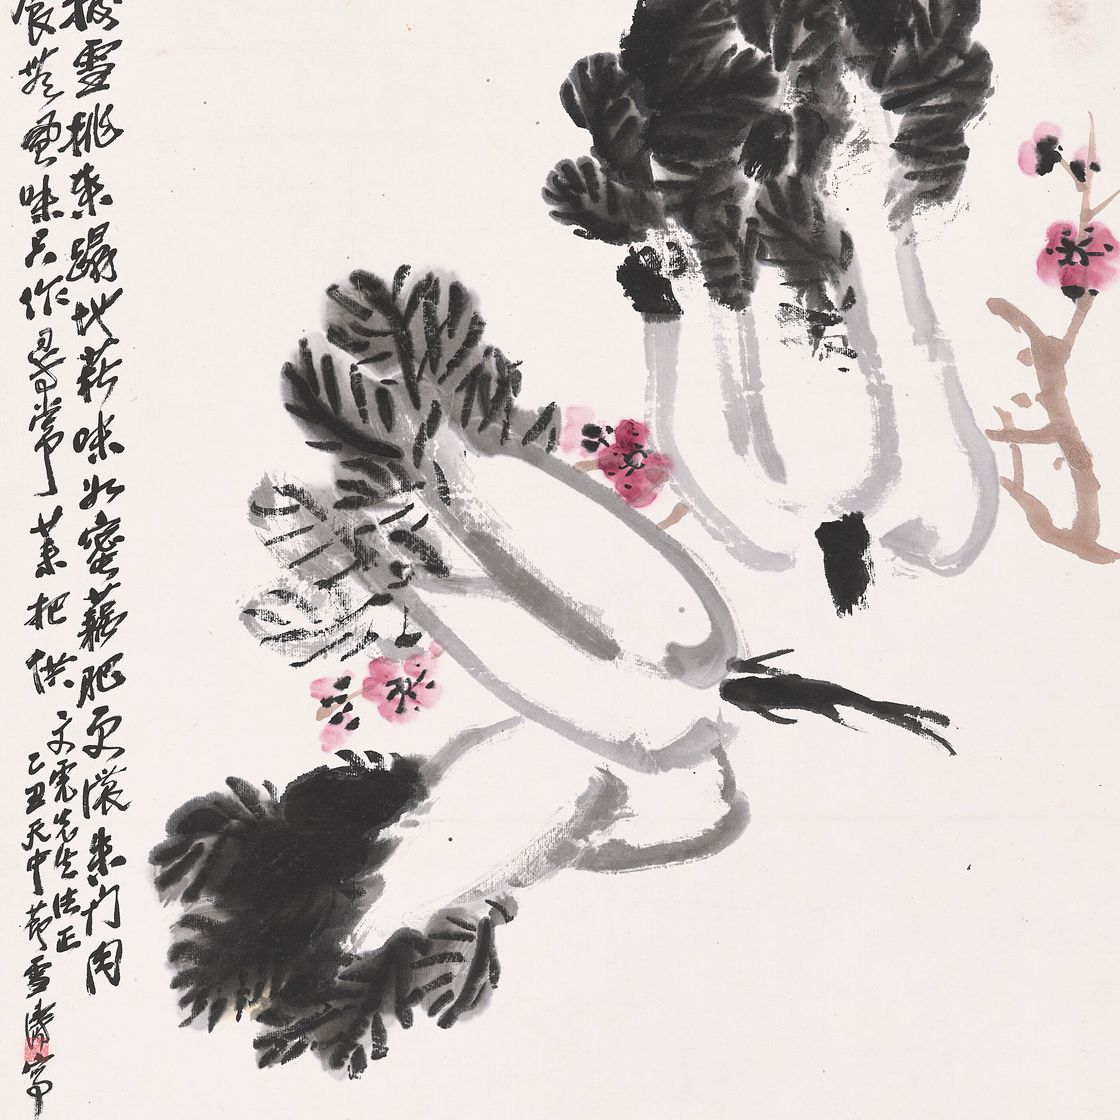 撥雪挑來蹋地菘味如蜜藕肥更濃朱門肉
食無風味只作尋常菜把供
文先生法正
乙丑天中節雪濤寫